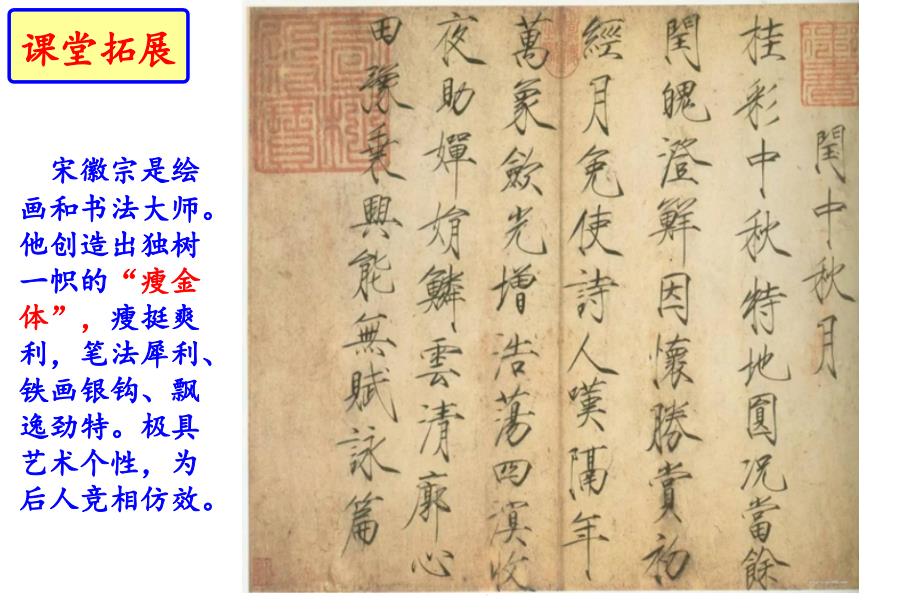 课堂拓展
宋徽宗是绘
画和书法大师。
他创造出独树
一帜的“瘦金
体”，瘦挺爽
利，笔法犀利、
铁画银钩、飘
逸劲特。极具
艺术个性，为
后人竞相仿效。
閏中秋月
桂彩中秋特地圓况當餘
閏魄澄鮮因懷勝賞初
經月免使詩人嘆隔年
萬象歛光增浩蕩四溟收
夜助嬋娟鱗雲清廓心
田豫乗興能無賦詠篇